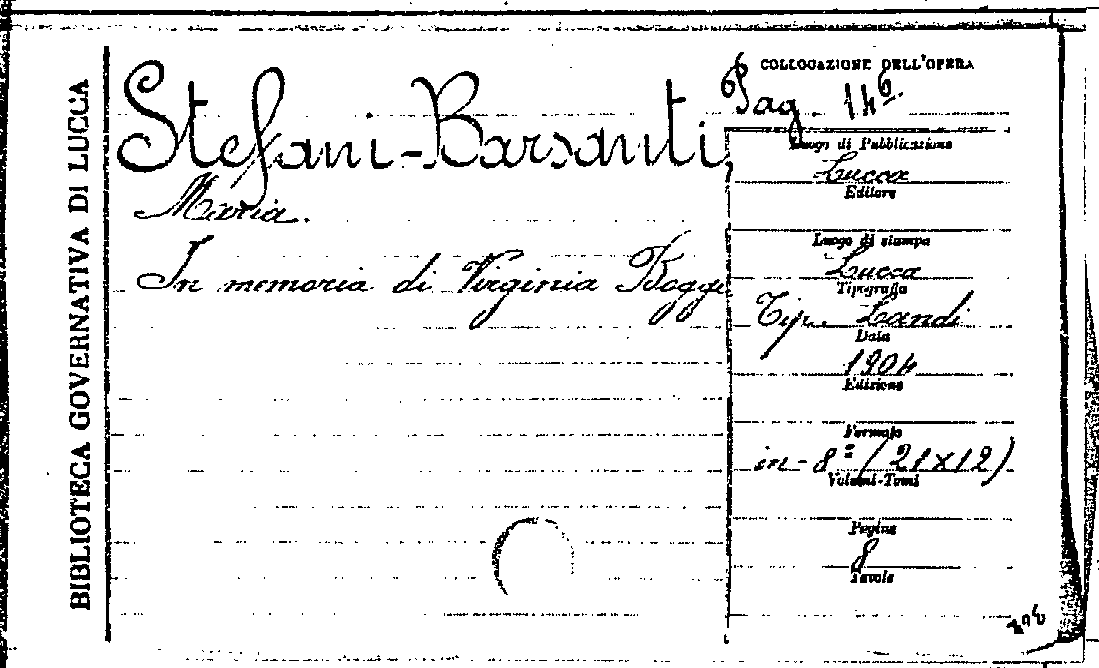 BIBLIOTECA GOVERNATIVA DI LUCCA
Stefani-Barsanti,
Maria.
In memoria di Virginia Boggi
COLLOCAZIONE DELL'OPERA
Pag. 146.
Luogo di Pubblicazione
Lucca
Editore
Luogo di stampa
Lucca
Tipografia
Tip. Landi
Data
1904
Edizione
Formato
in-8° (21x12)
Volumi-Tomi
Pagine
8
Tavole